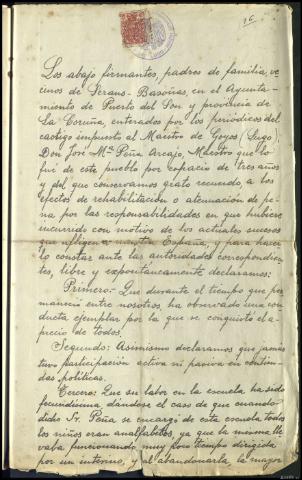 16
Los abajo firmantes, padres de familia, ve
cinos de Serans-Basoñas, en el Ayunta-
miento de Puerto del Son y provincia de
La Coruña, enterados por los periódicos del
castigo impuesto al Maestro de Goyos (Lugo)
Don José Mª Peña Arcajo, Maestro que lo
fué de este pueblo por espacio de tres años
y del que conservamos grato recuerdo a los
efectos de rehabilitación o atenuación de pe-
na por las responsabilidades en que hubiere
incurrido con motivo de los actuales sucesos
que afligen a nuestra España, y para hacer
lo constar ante las autoridades correspondien
tes, libre y espontáneamente declaramos:
Primero.- Que durante el tiempo que per
maneció entre nosotros ha observado una con
ducta ejemplar por la que se conquistó el a-
precio de todos.
Segundo: Asimismo declaramos que jamás
tuvo participación activa ni pasiva en contien
das políticas.
Tercero: Que su labor en la escuela ha sido
fecundísima dándose el caso de que cuando
dicho Sr. Peña, se encargó de esta escuela todos
los niños eran analfabetos, ya que la misma lle
vaba funcionando muy poco tiempo dirigida
por un interino, y al abandonarla, la mayor